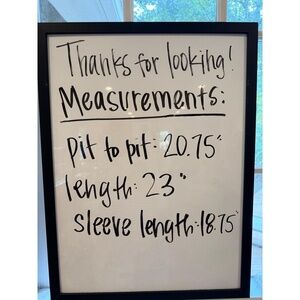 Thanks for looking!
Measurements:
pit to pit: 20.75"
length: 23"
sleeve length: 18.75"